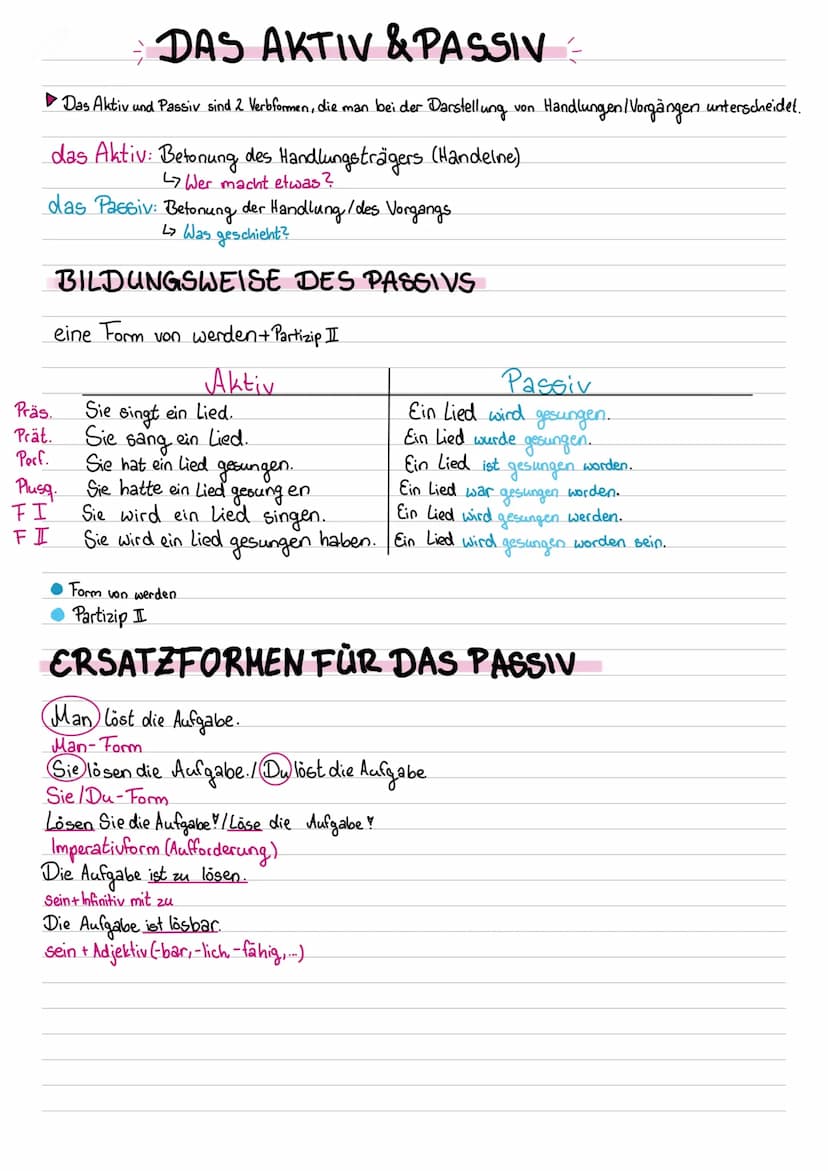 DAS AKTIV & PASSIV
▶ Das Aktiv und Passiv sind 2 Verbformen, die man bei der Darstellung von Handlungen/Vorgängen unterscheidet.
das Aktiv: Betonung des Handlungsträgers (Handelne)
↳ Wer macht etwas?
das Passiv: Betonung der Handlung/des Vorgangs
↳ Was geschieht?
BILDUNGSWEISE DES PASSIVS
eine Form von werden + Partizip II
Aktiv Passiv
Präs. Sie singt ein Lied. Ein Lied wird gesungen.
Prät. Sie sang ein Lied. Ein Lied wurde gesungen.
Perf. Sie hat ein Lied gesungen. Ein Lied ist gesungen worden.
Plusq. Sie hatte ein Lied gesungen Ein Lied war gesungen worden.
F I Sie wird ein Lied singen. Ein Lied wird gesungen werden.
F II Sie wird ein Lied gesungen haben. Ein Lied wird gesungen worden sein.
● Form von werden
● Partizip II
ERSATZFORMEN FÜR DAS PASSIV
Man löst die Aufgabe.
Man-Form
Sie lösen die Aufgabe./Du löst die Aufgabe
Sie/Du-Form
Lösen Sie die Aufgabe!/Löse die Aufgabe!
Imperativform (Aufforderung)
Die Aufgabe ist zu lösen.
sein + Infinitiv mit zu
Die Aufgabe ist lösbar.
sein + Adjektiv (-bar, -lich -fähig,...)